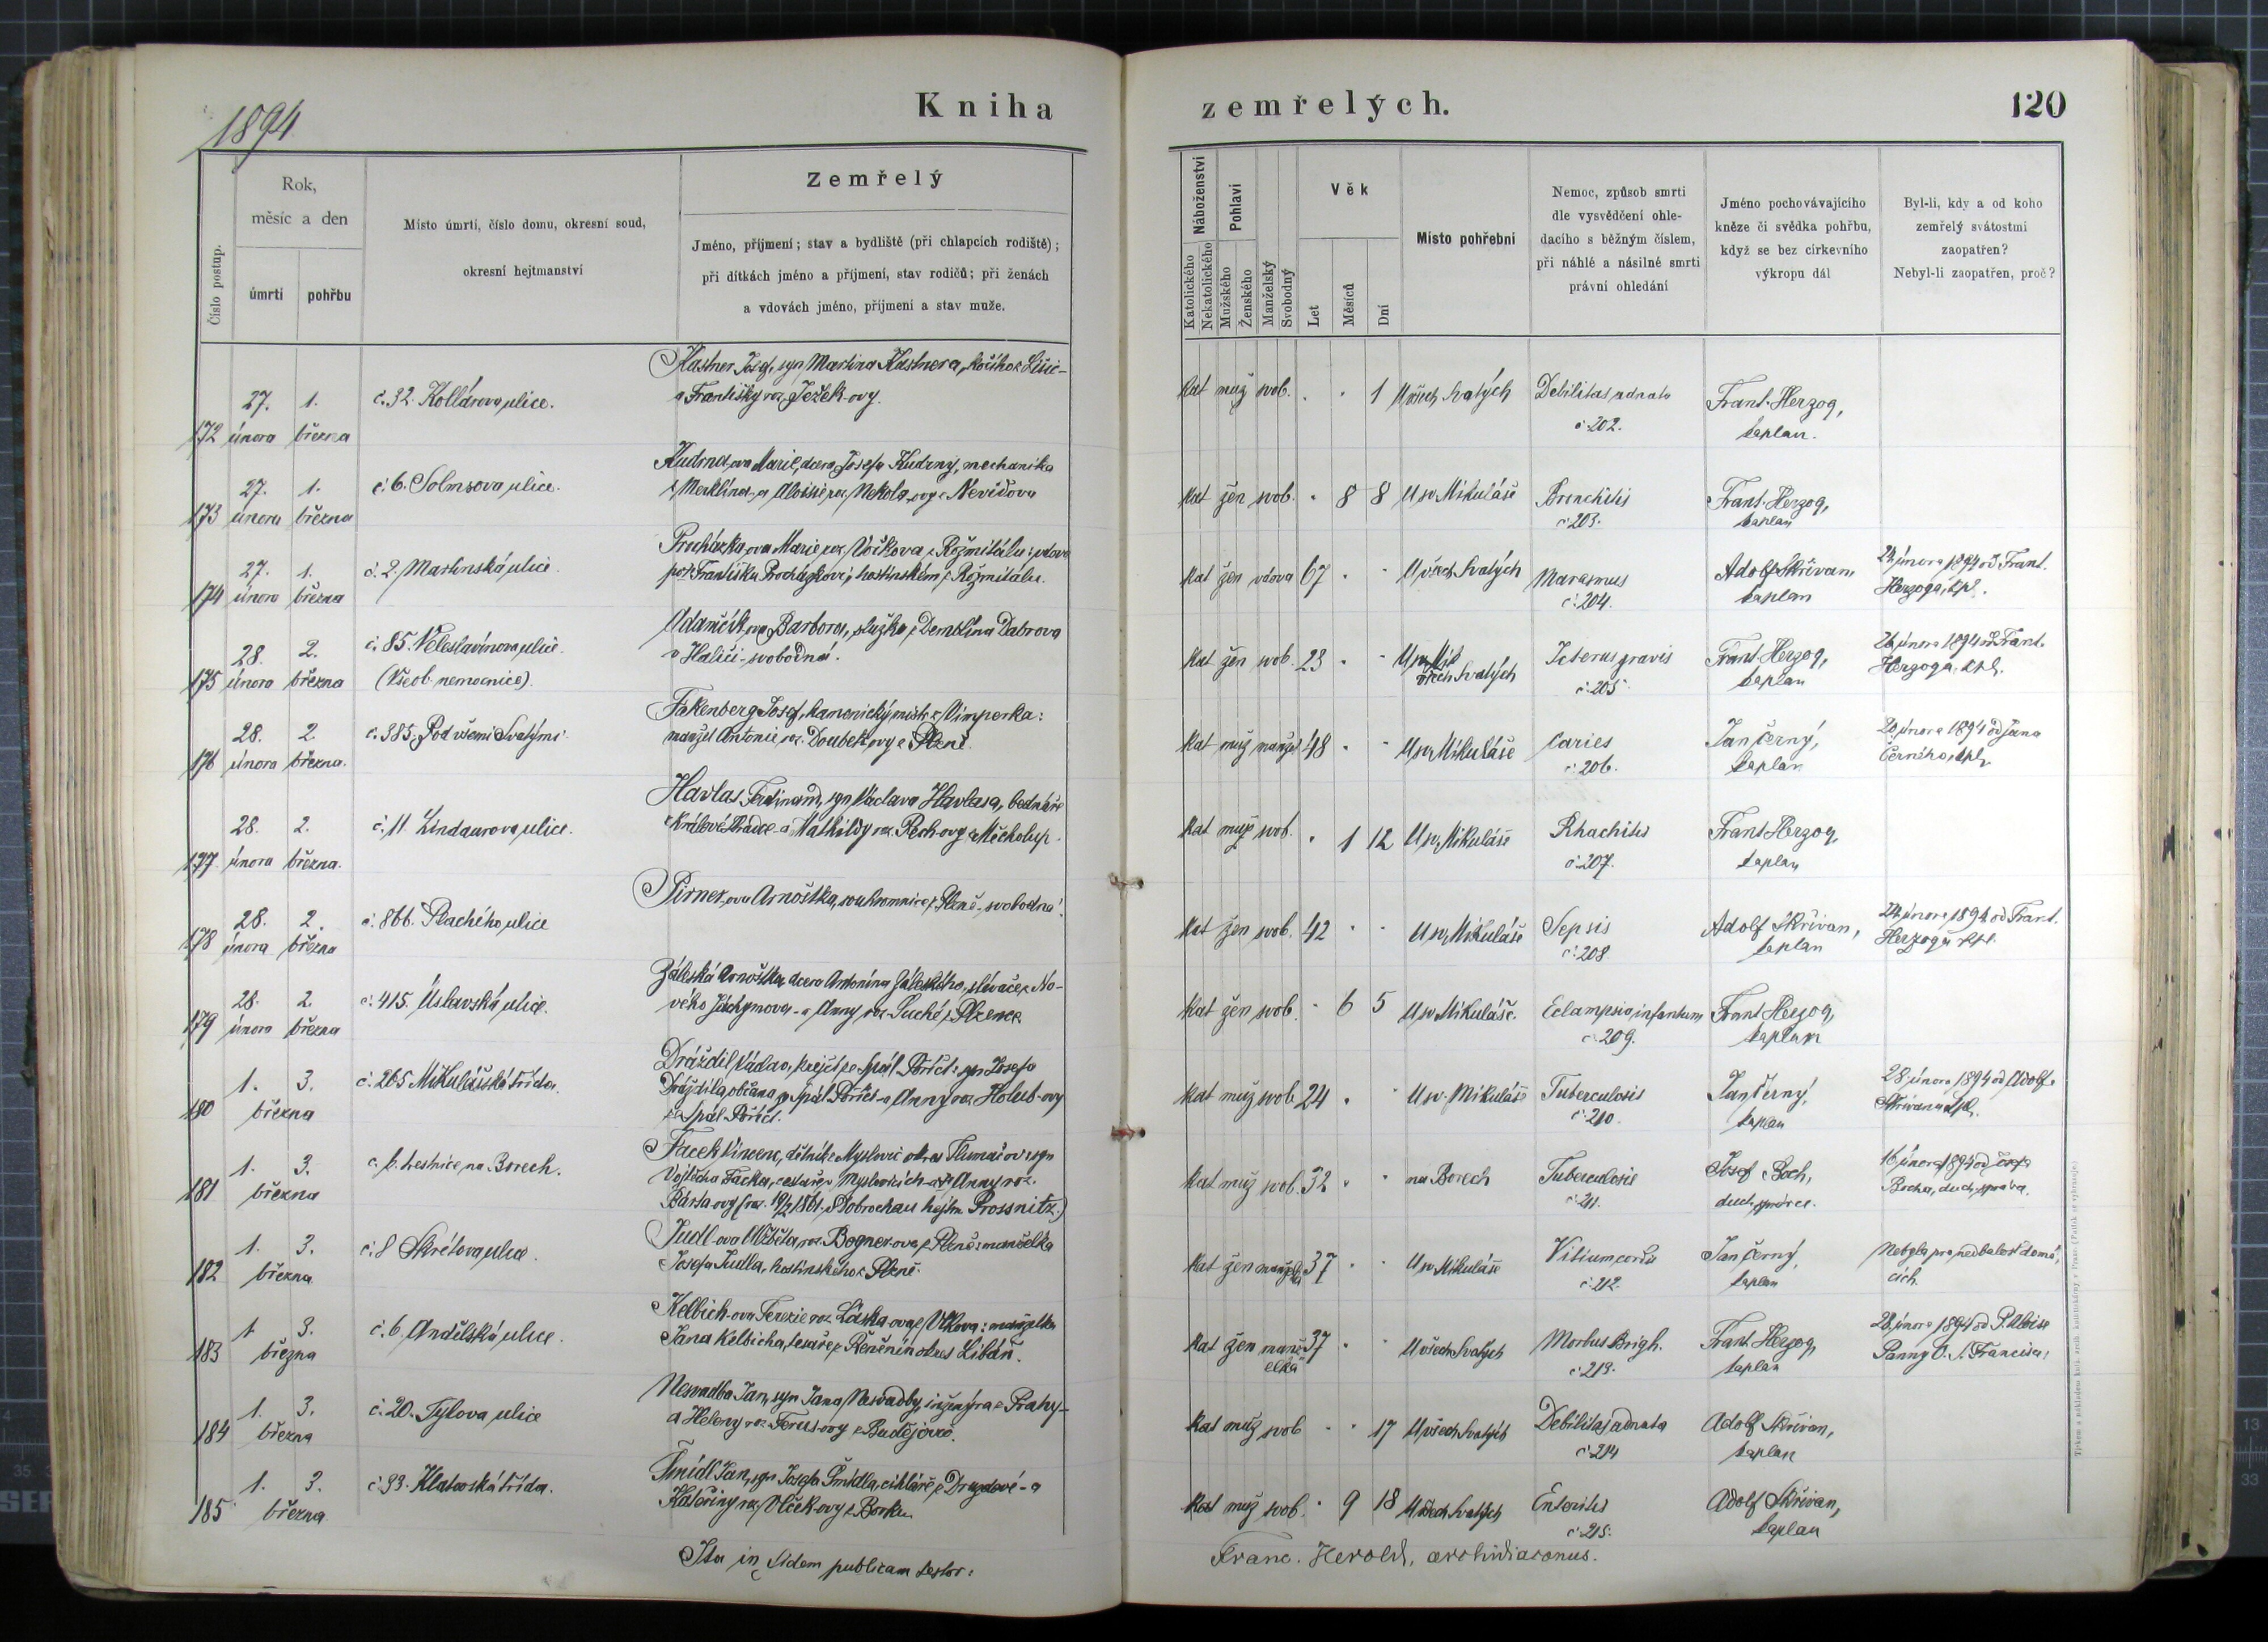 1894
Kniha
zemřelých.
120
Číslo postup.
Rok,
měsíc a den
úmrtí
pohřbu
Místo úmrtí, číslo domu, okresní soud,
okresní hejtmanství
Zemřelý
Jméno, příjmení; stav a bydliště (při chlapcích rodiště);
při dítkách jméno a příjmení, stav rodičů; při ženách
a vdovách jméno, příjmení a stav muže.
Náboženství
Katolického
Nekatolického
Pohlaví
Mužského
Ženského
Manželský
Svobodný
Věk
Let
Měsíců
Dní
Místo pohřební
Nemoc, způsob smrti
dle vysvědčení ohle-
dacího s běžným číslem,
při náhlé a násilné smrti
právní ohledání
Jméno pochovávajícího
kněze či svědka pohřbu,
když se bez církevního
výkropu dál
Byl-li, kdy a od koho
zemřelý svátostmi
zaopatřen?
Nebyl-li zaopatřen, proč?
172 27. února 1. března č. 32. Kollárova ulice.
Kastner Josef, syn Martina Kastnera, kočího z
a Františky roz. Ježek-ovy.
kat muž svob. . . 1 U všech Svatých Debilitas adnata č. 202. Frant. Herzog, kaplan.
173 27. února 1. března č. 6. Solmsova ulice.
Kudrna-ova Marie, dcera Josefa Kudrny, mechanika
z Merklína - a Aloisie roz. Nekola-ovy z
kat žen svob. . 8 8 U sv. Mikuláše Bronchitis č. 203. Frant. Herzog, kaplan
174 27. února 1. března č. 2. Martinská ulice.
Procházka-ova Marie roz. z Rožmitálu: vdova
po Františku Procházkovi, hostinském z Rožmitálu.
kat žen vdova 67 . . U všech Svatých Marasmus č. 204. Adolf Skřivan, kaplan
února 1894 od Frant. Herzoga, kpl.
175 28. února 2. března č. 85. Veleslavínova ulice. (Všeob. nemocnice).
Adamčík-ova Barbora, služka z Demblína Dabrova
v Haliči - svobodná.
kat žen svob. 23 . . všech Svatých Icterus gravis č. 205. Frant. Herzog, kaplan
26. února 1894 od Frant. Herzoga, kpl.
176 28. února 2. března. č. 385. Pod všemi Svatými.
Josef, kamenický mistr z Vimperka:
manžel Antonie roz. Doubek-ovy z Plzně.
kat muž manžel 48 . . U sv. Mikuláše Caries č. 206. Jan Černý, kaplan
20. února 1894 od Jana Černého, kpl.
177 28. února 2. března. č. 11. Lindaurova ulice.
Havlas Ferdinand, syn Václava Havlasa, bednáře
z Králové Hradce - a Mathildy roz. Pech-ovy z Měcholup.
kat muž svob. . 1 12 U sv. Mikuláše Rhachitis č. 207. Frant. Herzog, kaplan
178 28. února 2. března č. 866. Plachého ulice
Pirner-ova Arnoštka, soukromnice z Plzně - svobodná.
kat žen svob. 42 . . U sv. Mikuláše Sepsis č. 208. Adolf Skřivan, kaplan
24. února 1894 od Frant. Herzoga kpl.
179 28. února 2. března č. 415. Úslavská ulice.
Záleská Arnoštka, dcera Antonína Záleského, slévače z No-
vého Jáchymova - a Anny roz. Suché z Plzence
kat žen svob. . 6 5 U sv. Mikuláše. Eclampsia infantum č. 209. Frant. Herzog, kaplan
180 1. 3. března č. 265 Mikulášská třída.
Dráždil Václav, krejčí ze Spál. Poříčí: syn Josefa
Dráždila, občana ze Spál. Poříčí - a Anny roz. Holub-ovy
ze Spál. Poříčí.
kat muž svob. 24 . . U sv. Mikuláše Tuberculosis č. 210. Jan Černý, kaplan
28. února 1894 od Adolfa Skřivana kpl.
181 1. 3. března č. 6. trestnice na Borech.
Facek Vincenc, dělník z Myslovic okres : syn
Vojtěcha Facka, cestáře v Myslovicích - a Anny roz.
Bárta-ovy (nar. 1861. Dobrochau hejtm. Prossnitz.)
kat muž svob. 32 . . na Borech Tuberculosis č. 211. Josef Boch, duch. správce.
16. února 1894 od Josefa Bocha, duch. správce.
182 1. 3. března č. 8 Skrétova ulice.
Judl-ova Alžběta, roz. Bogner-ova z Plzně: manželka
Josefa Judla, hostinského z Plzně.
kat žen manželka 37 . . U sv. Mikuláše Vitium cordis č. 212. Jan Černý, kaplan
Nebyla pro nedbalost domá-
cích.
183 1. 3. března č. 6. Andělská ulice.
Kelbich-ova Terezie roz. Láska-ova z Vlkova: manželka
Jana Kelbicha, tesaře z okres Libáň.
kat žen manželka 37 . . U všech Svatých Morbus Brigh. č. 213. Frant. Herzog, kaplan
28. února 1894 od P. Aloise Panny O. S. Francisci
184 1. 3. března č. 20. Tylova ulice
Nesvadba Jan, syn Jana Nesvadby, inženýra z Prahy -
a Heleny roz. -ovy z Budějovic.
kat muž svob . . 17 U všech Svatých Debilitas adnata č. 214 Adolf Skřivan, kaplan
185 1. 3. března č. 93. Klatovská třída.
Šmídl Jan, syn Josefa Šmídla, cihláře z - a
Kateřiny roz. Vlček-ovy z Borku.
kat muž svob. . 9 18 U všech Svatých Enteritis č. 215. Adolf Skřivan, kaplan
Ita in fidem publicam testor:
Franc. Herold, archidiaconus.